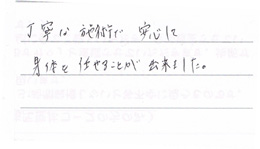 丁寧な施術で安心して
身体を任せることが出来ました。